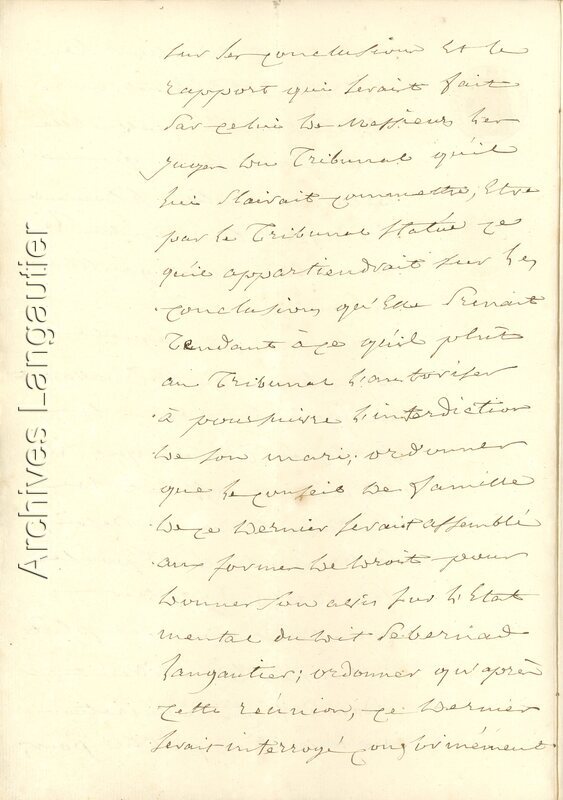 sur les conclusions et le
rapport qui serait fait
par celui de Messieurs les
juges du Tribunal qu'il
lui plairait commettre, Etre
par le Tribunal statué ce
qu'il appartiendrait sur les
conclusions qu'Elle prenait
Tendant à ce qu'il plût
au Tribunal l'autoriser
à poursuivre l'interdiction
de son mari; ordonner
que le conseil de famille
de ce dernier serait assemblé
aux formes de droit pour
donner son avis sur l'Etat
mental dudit Sebernad
Langautier; ordonner qu'après
cette réunion, ce dernier
serait interrogé conformément
Archives Langautier